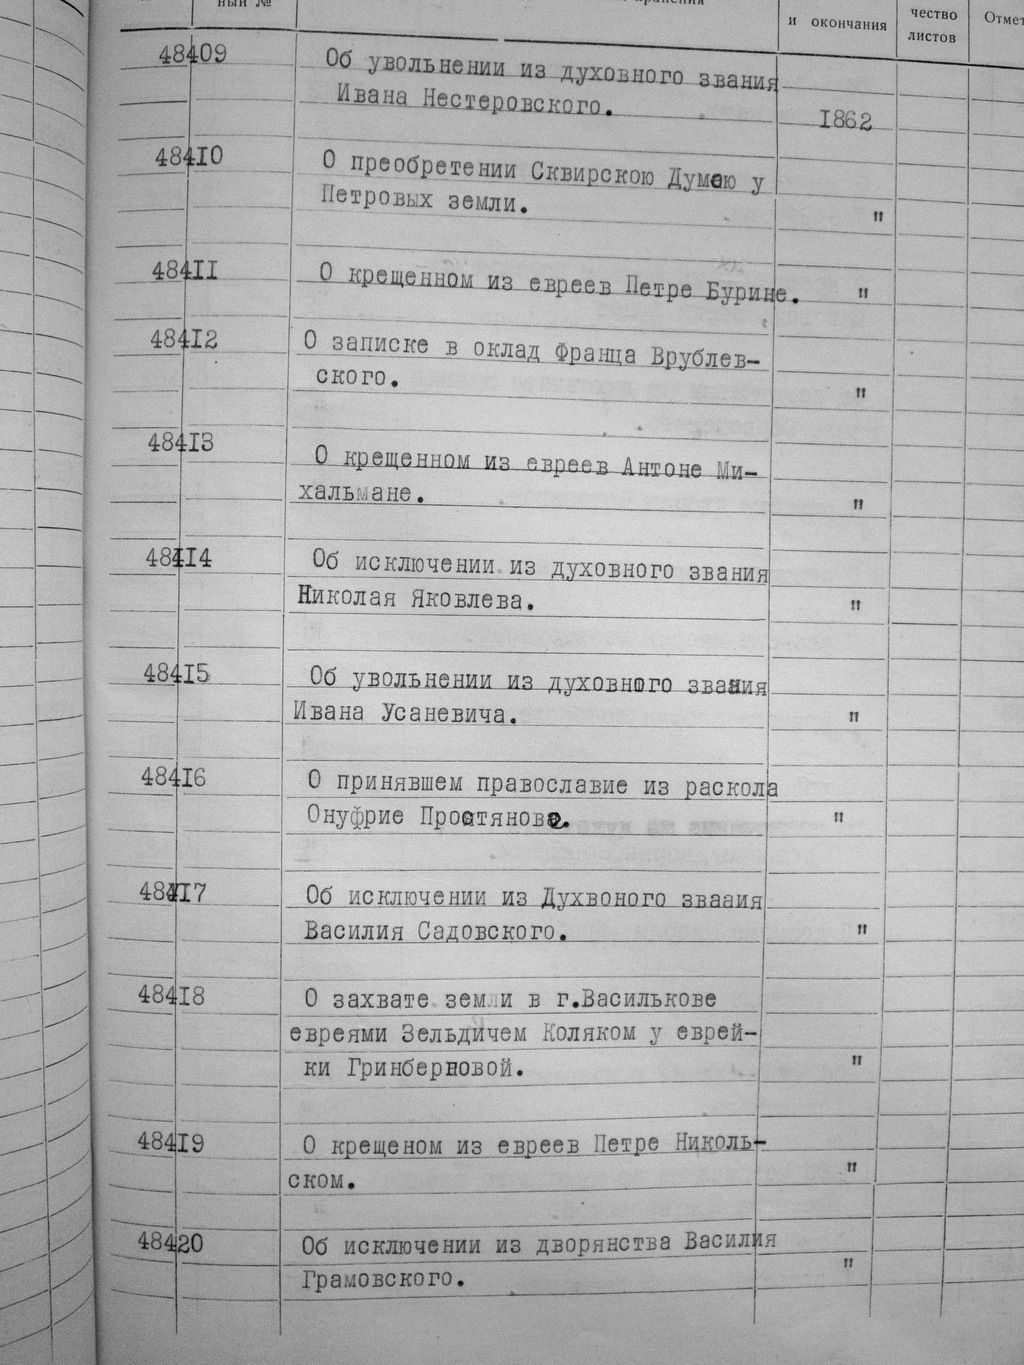 ный №
и окончания
чество
листов
Отмет
48409
Об увольнении из духовного звания
Ивана Нестеровского.
1862
48410
О преобретении Сквирскою Думою у
Петровых земли.
"
48411
О крещенном из евреев Петре Бурине.
"
48412
О записке в оклад Франца Врублев-
ского.
"
48413
О крещенном из евреев Антоне Ми-
хальмане.
"
48414
Об исключении из духовного звания
Николая Яковлева.
"
48415
Об увольнении из духовного звания
Ивана Усаневича.
"
48416
О принявшем православие из раскола
Онуфрие Простянове.
"
48417
Об исключении из Духвоного звааия
Василия Садовского.
"
48418
О захвате земли в г.Василькове
евреями Зельдичем Коляком у еврей-
ки Гринберновой.
"
48419
О крещеном из евреев Петре Николь-
ском.
"
48420
Об исключении из дворянства Василия
Грамовского.
"